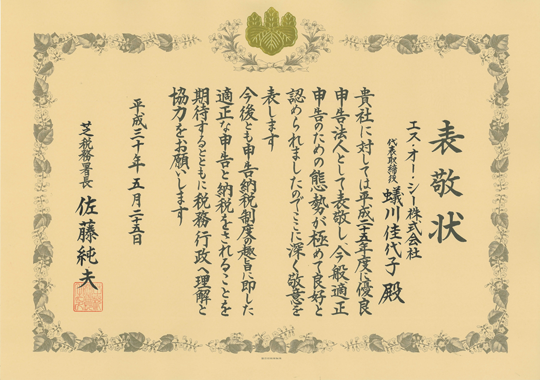 表敬状
エス・オー・シー株式会社
代表取締役 蟻川佳代子 殿
貴社に対しては平成二十五年度に優良
申告法人として表敬し、今般適正
申告のための態勢が極めて良好と
認められましたのでここに深く敬意を
表します
今後とも申告納税制度の趣旨に即した
適正な申告と納税をされることを
期待するとともに税務行政へ理解と
協力をお願いします
平成三十年五月二十五日
芝税務署長 佐藤純夫